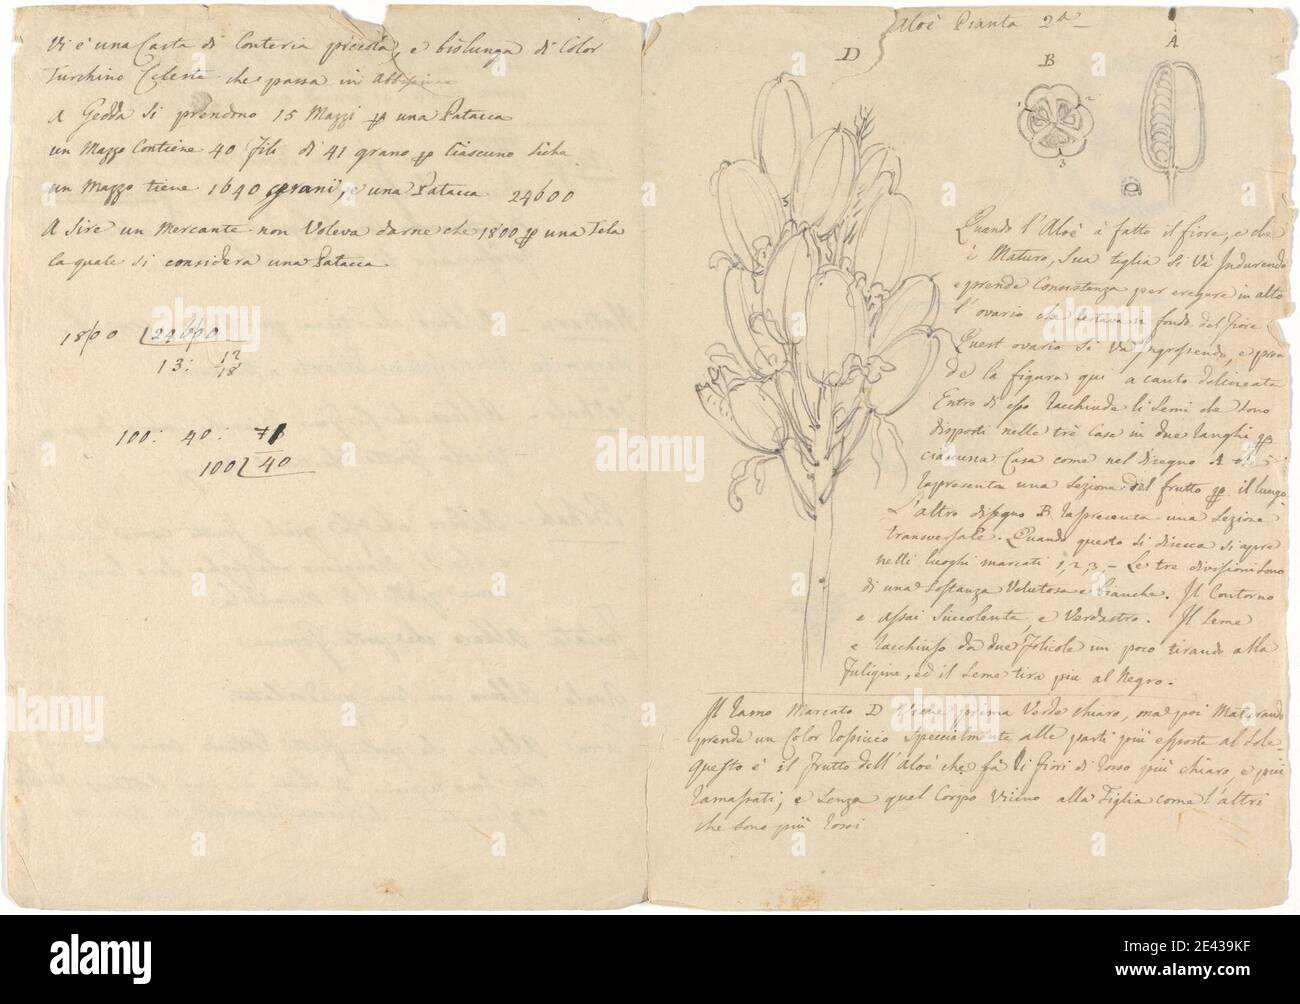 Vi è una Casta di Conteria piccola, e bislunga di Color
Turchino Celeste che passa in Abbissinia
A Gedda si prendono 15 Mazzi p una Patacca
un Mazzo Contiene 40 fili di 41 grano p Ciascuno Siche
un Mazzo tiene 1640 grani, e una Patacca 24600
A Sire un Mercante non Voleva darne che 1800 p una Tela
la quale si considera una Patacca
1800 24600
13: 12
18
100: 40:
100 40
Aloè Pianta 2a
D
B
A
1
2
3
Quando l'Aloè à fatto il fiore, e che
è Maturo, Sua figlia si Và Indurendo
e prende Consistenza per eregere in alto
l'ovario che restava in fondo del fiore
Quest ovario si Va ingrossendo, e pren
de la figura qui a canto delineata
Entro di esso racchiude li Semi che sono
disposti nelle trè Case in due ranghi p
ciascuna Casa come nel disegno A che
rapresenta una Sezione del frutto p il lungo.
L'altro disegno B rapresenta una Sezione
transversale. Quando questo si disecca si apre
nelli luoghi marcati 1, 2, 3, - Le tre divisioni sono
di una Sostanza Velutosa e bianche. Il Contorno
e assai Succolente, e Verdastro. Il Seme
e racchiuso da due Folicole un poco tirando alla
Fuligine, ed il Seme tira più al Negro.
Il ramo Marcato D Viene prima Verde chiaro, ma poi Maturando
prende un Color rossiccio Specialmente alle parti più esposte al Sole.
Questo è il frutto dell'Aloè che fà li fiori di rosso più chiaro, e più
ramassati, e Senza quel Corpo Vicino alla figlia come l'altri
che sono più rossi
alamy
Image ID: 2E439KF
www.alamy.com